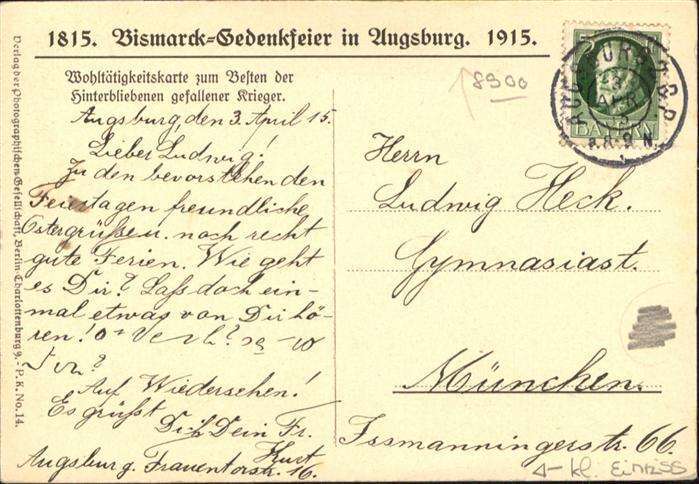 1815. Bismarck-Gedenkfeier in Augsburg. 1915.
Wohltätigkeitskarte zum Besten der
Hinterbliebenen gefallener Krieger.
Augsburg, den 3. April 15.
Lieber Ludwig!
Zu den bevorstehenden
Feiertagen freundliche
Ostergrüßen. noch recht
gute Ferien. Wie geht
es Dir? Laß doch ein-
mal etwas von Dir hö-
ren!
Auf Wiedersehen!
Es grüßt
Dich Dein Fr.
Kurt
Augsburg. Frauentorstr. 16.
8900
BAYERN
Herrn
Ludwig Heck.
Gymnasiast.
München.
Issmanningerstr. 66.
kl. Einriss
Verlag der Photographischen Gesellschaft, Berlin-Charlottenburg 9. - P. K. No. 14.